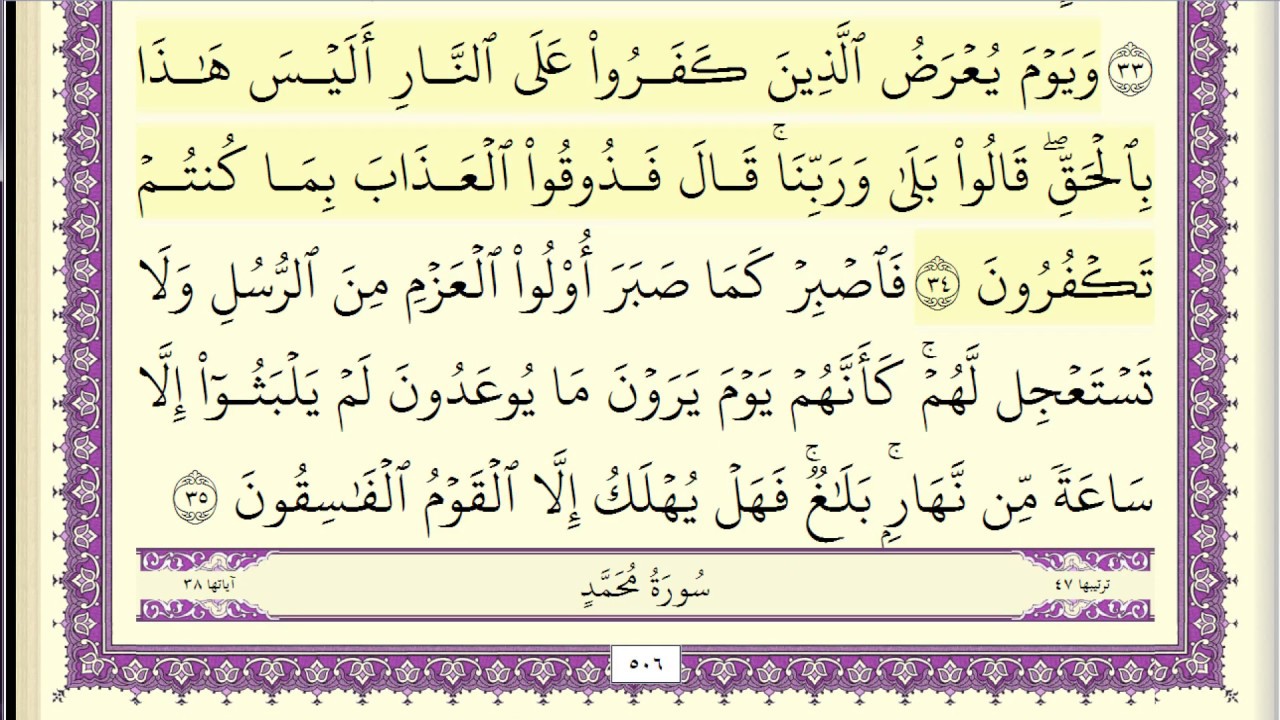 ٣٣ وَيَوْمَ يُعْرَضُ ٱلَّذِينَ كَفَرُوا۟ عَلَى ٱلنَّارِ أَلَيْسَ هَٰذَا
بِٱلْحَقِّ ۖ قَالُوا۟ بَلَىٰ وَرَبِّنَا ۚ قَالَ فَذُوقُوا۟ ٱلْعَذَابَ بِمَا كُنتُمْ
تَكْفُرُونَ ٣٤ فَٱصْبِرْ كَمَا صَبَرَ أُو۟لُوا۟ ٱلْعَزْمِ مِنَ ٱلرُّسُلِ وَلَا
تَسْتَعْجِل لَّهُمْ ۚ كَأَنَّهُمْ يَوْمَ يَرَوْنَ مَا يُوعَدُونَ لَمْ يَلْبَثُوٓا۟ إِلَّا
سَاعَةً مِّن نَّهَارٍۭ ۚ بَلَٰغٌ ۚ فَهَلْ يُهْلَكُ إِلَّا ٱلْقَوْمُ ٱلْفَٰسِقُونَ ٣٥
ترتيبها ٤٧ سُورَةُ مُحَمَّدٍ آياتها ٣٨
٥٠٦